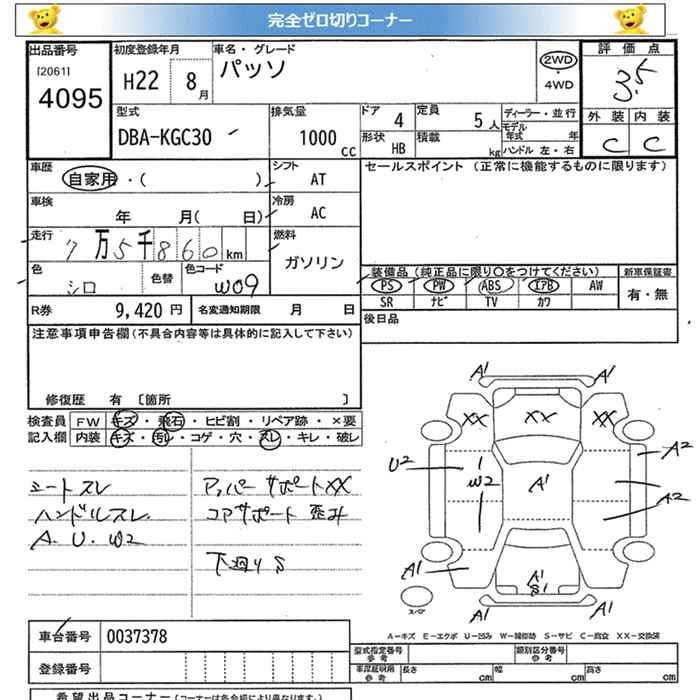 完全ゼロ切りコーナー
出品番号
[2061]
4095
初度登録年月
H22 8月
車名・グレード
パッソ
2WD
・
4WD
評価点
3.5
外装 内装
C C
型式
DBA-KGC30
排気量
1000 cc
ドア 4
形状 HB
定員 5人
積載 kg
ディーラー・並行
モデル年式 年
ハンドル 左・右
車歴
自家用・( )
シフト
AT
セールスポイント (正常に機能するものに限ります)
車検
年 月( 日)
冷房
AC
走行
7万5千860km
燃料
ガソリン
色
シロ
色替
色コード
W09
装備品(純正品に限り○をつけてください)
PS PW ABS エアB AW
SR ナビ TV カワ
新車保証書
有・無
R券 9,420 円
名変通知期限 月 日
後日品
注意事項申告欄(不具合内容等は具体的に記入して下さい)
修復歴 有 〔箇所 〕
検査員記入欄
FW キズ・飛石・ヒビ割・リペア跡・×要
内装 キズ・汚れ・コゲ・穴・スレ・キレ・破レ
シートスレ
ハンドルスレ.
A. U. W2
アッパーサポートXX
コアサポート 歪み
下廻りS
A1 A1
XX XX XX
U2 W2 A1 A2
A2
A1 A1
S1
A1 A1
スペア
A-キズ E-エクボ U-凹み W-補修跡 S-サビ C-腐食 XX-交換済
車台番号 0037378
登録番号
型式指定番号
参考
類別区分番号
参考
車庫証明用
参考
長さ cm 幅 cm 高さ cm
希望出品コーナー(コーナーは各会場により異なります。)